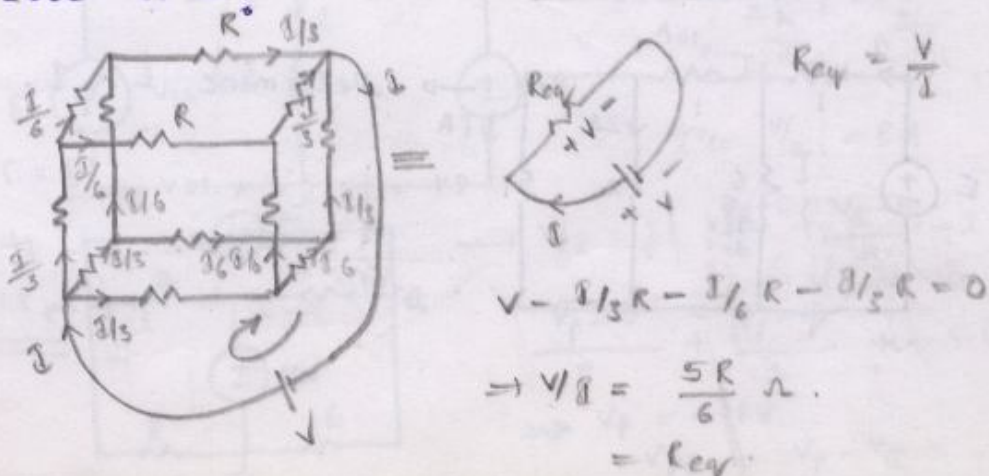 R I/3
I/6 R I/3 I
I/6
I/6 I/3
I/3 I/3 I/6 I/6 I/6
I/3
I
V
≡
Req
+ V -
+ V -
I
Req = V/I
V - I/3 R - I/6 R - I/3 R = 0
⇒ V/I = 5R/6 Ω.
= Req.